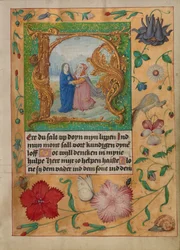 H
Ere du salt vp doyn myn lippen Ind
myn mont sall vort kundygen dyne
loff Got will dencken in myne
hulpe Here myr zo helpen haiste Glo
rie sy dem vader ind dem sone ind dem